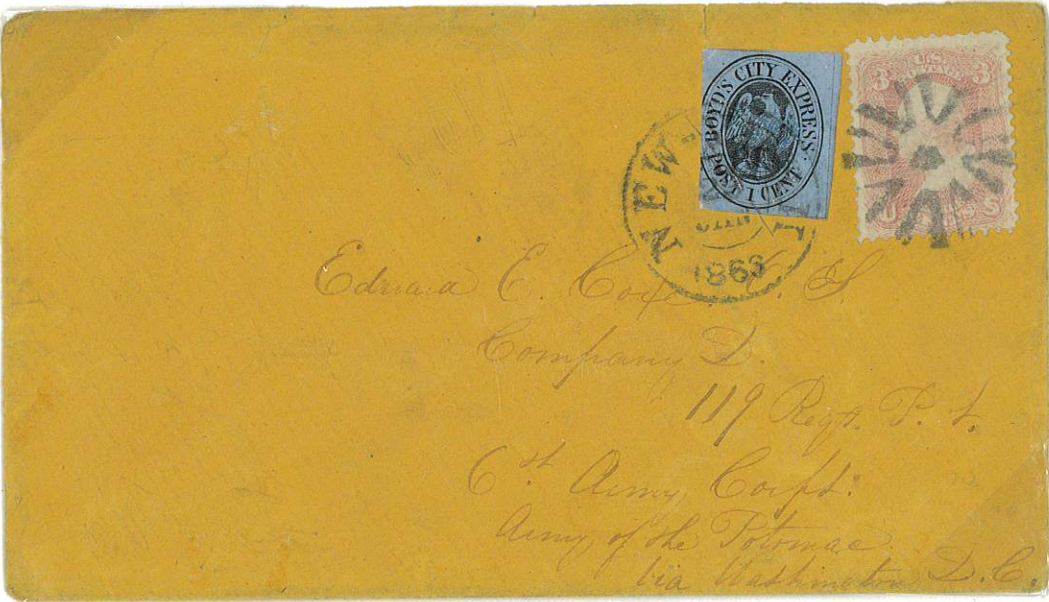 BOYD'S CITY EXPRESS.
POST 1 CENT
3 3
U S
NEW
1863
Edward E. Coxe
Company D.
119 Regt. P. V.
6st Army Corps.
Army of the Potomac
Via Washington D.C.